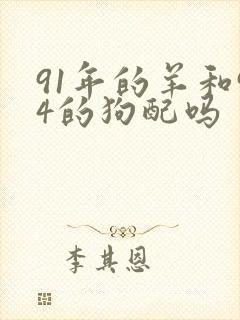 91年的羊和9
4的狗配吗
李其恩